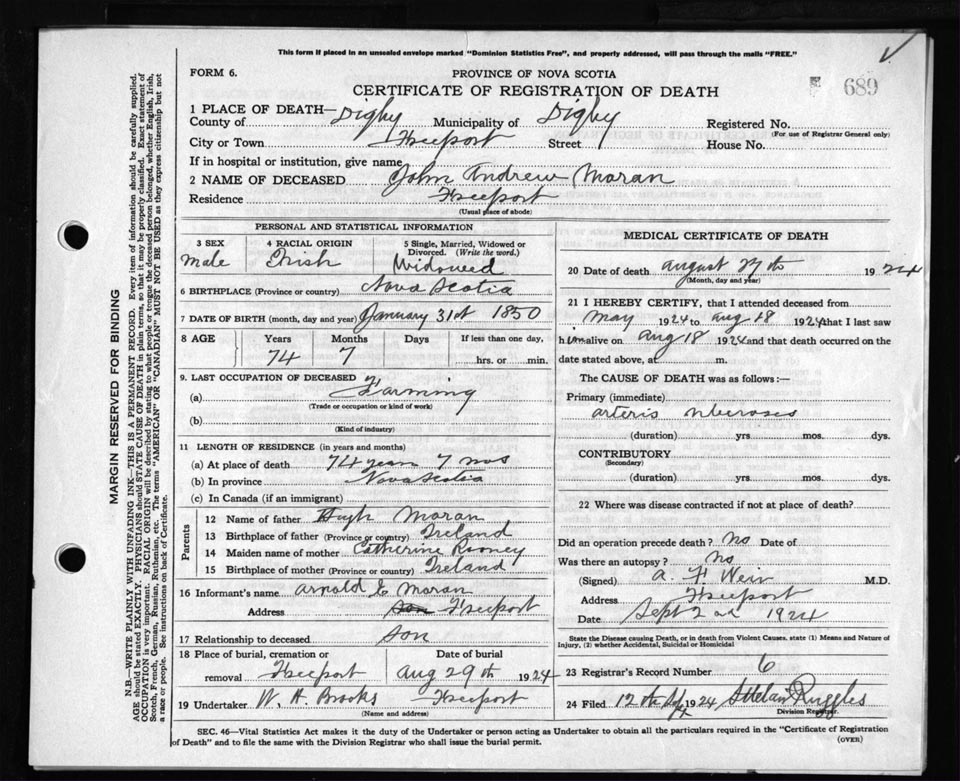 This form if placed in an unsealed envelope marked "Dominion Statistics Free", and properly addressed, will pass through the mails "FREE."
FORM 6.
PROVINCE OF NOVA SCOTIA
CERTIFICATE OF REGISTRATION OF DEATH
689
1 PLACE OF DEATH—
County of Digby Municipality of Digby Registered No.
(For use of Registrar General only)
City or Town Freeport Street House No.
If in hospital or institution, give name
2 NAME OF DECEASED John Andrew Moran
Residence Freeport
(Usual place of abode)
PERSONAL AND STATISTICAL INFORMATION
3 SEX 4 RACIAL ORIGIN 5 Single, Married, Widowed or Divorced. (Write the word.)
Male Irish Widowed
6 BIRTHPLACE (Province or country) Nova Scotia
7 DATE OF BIRTH (month, day and year) January 31st 1850
8 AGE Years Months Days If less than one day,
74 7 hrs. or min.
9. LAST OCCUPATION OF DECEASED
(a) Farming
(Trade or occupation or kind of work)
(b)
(Kind of industry)
11 LENGTH OF RESIDENCE (in years and months)
(a) At place of death 74 years 7 mos
(b) In province Nova Scotia
(c) In Canada (if an immigrant)
Parents
12 Name of father Hugh Moran
13 Birthplace of father (Province or country) Ireland
14 Maiden name of mother Catherine Rooney
15 Birthplace of mother (Province or country) Ireland
16 Informant's name Arnold E Moran
Address Freeport
17 Relationship to deceased son
18 Place of burial, cremation or removal Freeport Date of burial Aug 29th 1924
19 Undertaker W. H. Brooks Freeport
(Name and address)
MEDICAL CERTIFICATE OF DEATH
20 Date of death august 27th 1924
(Month, day and year)
21 I HEREBY CERTIFY, that I attended deceased from
May 1924 to aug 18 1924 that I last saw
him alive on aug 18 1924 and that death occurred on the
date stated above, at m.
The CAUSE OF DEATH was as follows:—
Primary (immediate)
arteris
(duration) yrs. mos. dys.
CONTRIBUTORY
(Secondary)
(duration) yrs. mos. dys.
22 Where was disease contracted if not at place of death?
Did an operation precede death? no Date of
Was there an autopsy? no
(Signed) A. F. Weir M.D.
Address Freeport
Date Sept 2nd 1924
State the Disease causing Death, or in death from Violent Causes, state (1) Means and Nature of
Injury, (2) whether Accidental, Suicidal or Homicidal
23 Registrar's Record Number 6
24 Filed 12th 1924 Ruggles
Division Registrar.
SEC. 46—Vital Statistics Act makes it the duty of the Undertaker or person acting as Undertaker to obtain all the particulars required in the "Certificate of Registration
of Death" and to file the same with the Division Registrar who shall issue the burial permit.
(OVER)
MARGIN RESERVED FOR BINDING
N.B.—WRITE PLAINLY WITH UNFADING INK—THIS IS A PERMANENT RECORD. Every item of information should be carefully supplied.
AGE should be stated EXACTLY. PHYSICIANS should STATE CAUSE OF DEATH in plain terms, so that it may be properly classified. Exact statement of
OCCUPATION is very important. RACIAL ORIGIN will be described by stating to what people or tongue the deceased person belonged, whether English, Irish,
Scotch, French, German, Russian, Ruthenian, etc. The terms "AMERICAN" OR "CANADIAN" MUST NOT BE USED as they express citizenship but not
a race or people. See instructions on back of Certificate.